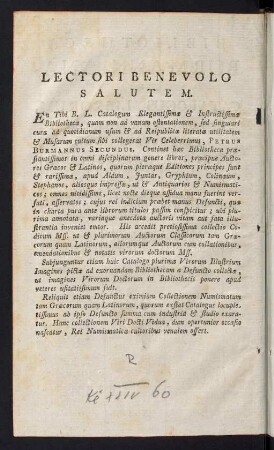 LECTORI BENEVOLO
SALUTEM.
En Tibi B. L. Catalogum Elegantissimæ & Instructissimæ
Bibliothecæ, quam non ad vanam ostentationem, sed singulari
cura ad quotidianum usum & ad Reipublicæ literatæ utilitatem
& Musarum cultum sibi collegerat Vir Celeberrimus, PETRUS
BURMANNUS SECUNDUS. Continet hæc Bibliotheca præ-
stantissimos in omni disciplinarum genere libros, præcipue Aucto-
res Græcos & Latinos, quorum pleræque Editiones principes sunt
& rarissimæ, apud Aldum, Juntas, Gryphium, Colinæum,
Stephanos, aliosque impressæ, ut & Antiquarios & Numismati-
cos; omnes nitidissime, licet nocte dieque assidua manu fuerint ver-
sati, asservatos; cujus rei indicium præbet manus Defuncti, qua
in charta pura ante librorum titulos passim conspiciuntur ubi
plurima annotata, variaque anecdota auctoris vitam aut fata illu-
strantia inveniri onerat. His accedit pretiosissima collectio Co-
dicum Mss. ut & plurimorum Auctorum Classicorum tam Græ-
corum quam Latinorum, aliorumque Auctorum cum collationibus,
emendationibus & notatis virorum doctorum Mss.
Subjunguntur etiam huic Catalogo plurimæ Virorum Illustrium
Imagines pictæ ad exornandam Bibliothecam a Defuncto collectæ,
ut imagines Virorum Doctorum in Bibliothecis ponere apud
veteres usitatissimum fuit.
Reliquit etiam Defunctus eximiam Collectionem Numismatum
tam Græcorum quam Latinorum, quorum exstat Catalogus locuple-
tissimus ab ipso Defuncto summa cum industria & studio exara-
tus. Hanc collectionem Viri Docti Vidua, dum opportunior occasio
nascatur, Rei Numismaticæ cultoribus venalem offert.
R
60